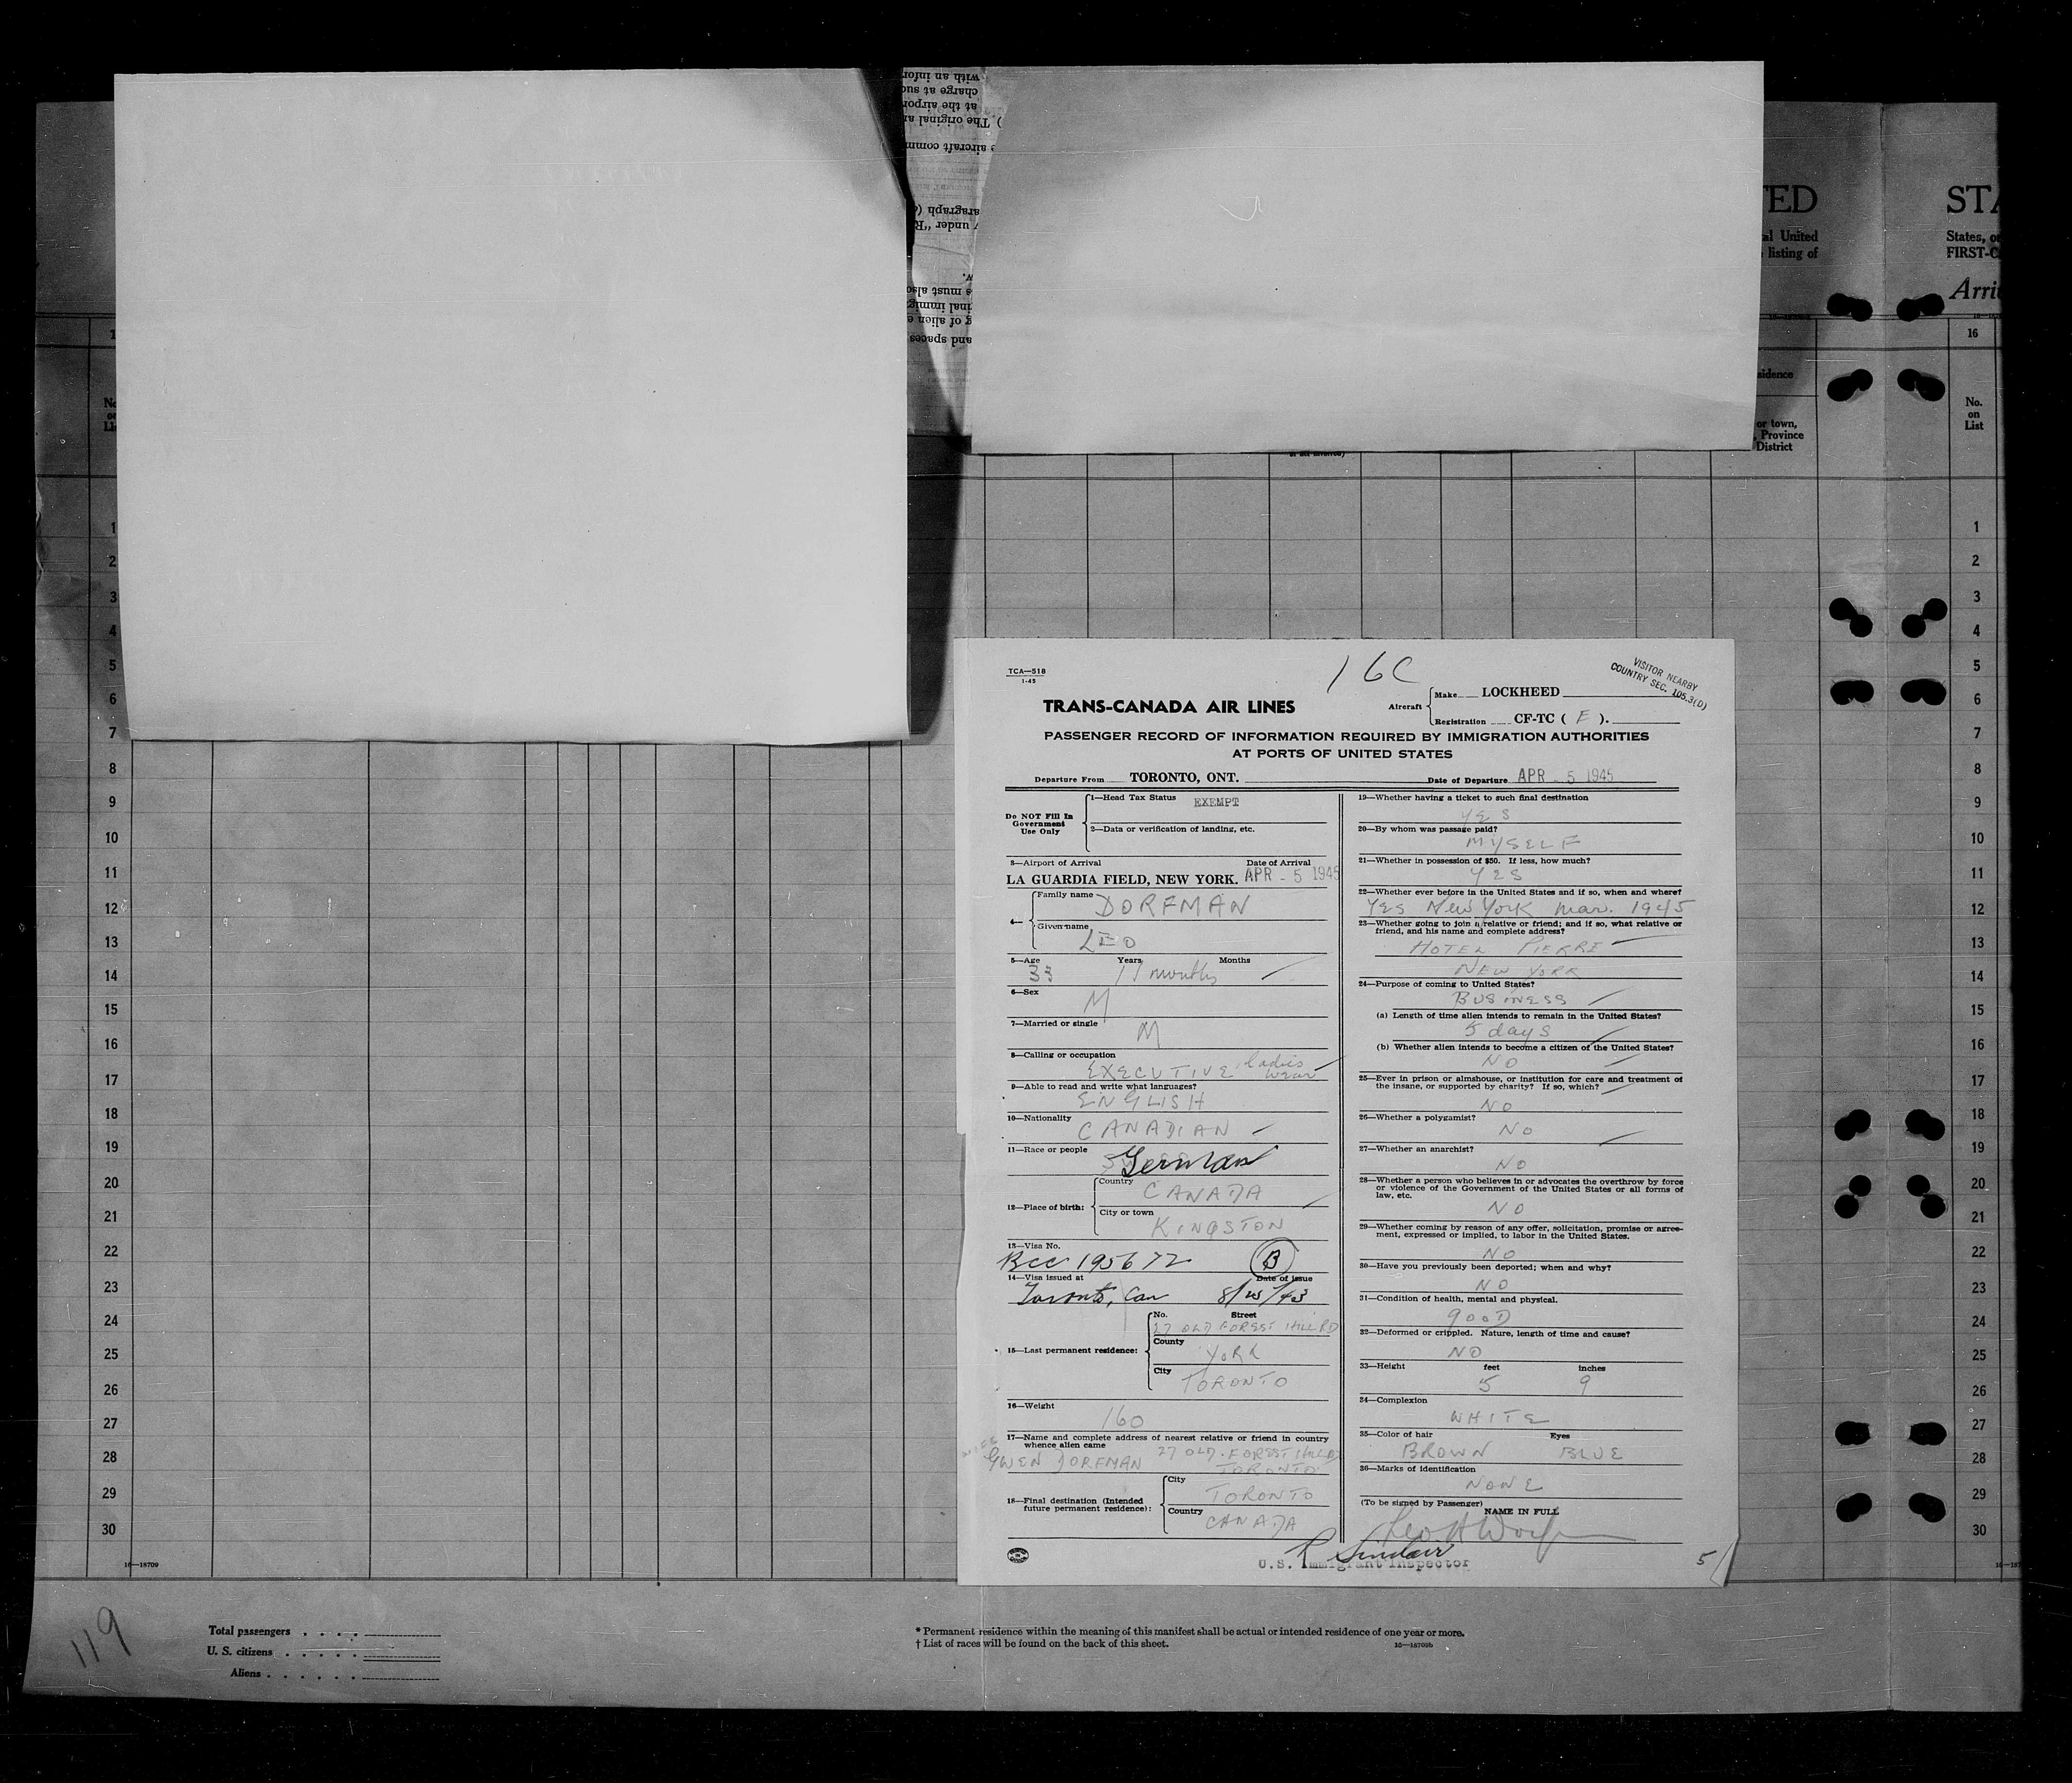 TED
al United
listing of
STA
States, or
FIRST-C
Arri
with an infor
charge at suc
at the airpor
) The original ar
aircraft comm
aragraph (
under "R
w.
s must also
inal immig
g of alien e
and spaces
16
sidence
or town,
, Province
District
No.
on
List
TCA—518
1-45
16C
VISITOR NEARBY
COUNTRY SEC. 105.3(D)
TRANS-CANADA AIR LINES
Aircraft
Make LOCKHEED
Registration CF-TC ( F ).
PASSENGER RECORD OF INFORMATION REQUIRED BY IMMIGRATION AUTHORITIES
AT PORTS OF UNITED STATES
Departure From TORONTO, ONT. Date of Departure APR - 5 1945
Do NOT Fill In
Government
Use Only
1—Head Tax Status EXEMPT
2—Data or verification of landing, etc.
3—Airport of Arrival Date of Arrival
LA GUARDIA FIELD, NEW YORK. APR - 5 1945
4—
Family name DORFMAN
Given name LEO
5—Age Years Months
33 11 months
6—Sex M
7—Married or single M
8—Calling or occupation
EXECUTIVE ladies wear
9—Able to read and write what languages?
ENGLISH
10—Nationality
CANADIAN
11—Race or people
German
12—Place of birth:
Country CANADA
City or town
KINGSTON
13—Visa No.
BCC 195672 B
14—Visa issued at Date of issue
Toronto, Can 8/25/43
15—Last permanent residence:
No. Street
27 OLD FOREST HILL RD
County YORK
City TORONTO
16—Weight
160
17—Name and complete address of nearest relative or friend in country
whence alien came
WIFE
GWEN DORFMAN 27 OLD FOREST HILL RD
TORONTO
18—Final destination (Intended
future permanent residence):
City TORONTO
Country CANADA
19—Whether having a ticket to such final destination
YES
20—By whom was passage paid?
MYSELF
21—Whether in possession of $50. If less, how much?
YES
22—Whether ever before in the United States and if so, when and where?
YES New York Mar. 1945
23—Whether going to join a relative or friend; and if so, what relative or
friend, and his name and complete address?
HOTEL PIERRE
NEW YORK
24—Purpose of coming to United States?
BUSINESS
(a) Length of time alien intends to remain in the United States?
5 days
(b) Whether alien intends to become a citizen of the United States?
NO
25—Ever in prison or almshouse, or institution for care and treatment of
the insane, or supported by charity? If so, which?
NO
26—Whether a polygamist?
NO
27—Whether an anarchist?
NO
28—Whether a person who believes in or advocates the overthrow by force
or violence of the Government of the United States or all forms of
law, etc.
NO
29—Whether coming by reason of any offer, solicitation, promise or agree-
ment, expressed or implied, to labor in the United States.
NO
30—Have you previously been deported; when and why?
NO
31—Condition of health, mental and physical.
GOOD
32—Deformed or crippled. Nature, length of time and cause?
NO
33—Height feet inches
5 9
34—Complexion
WHITE
35—Color of hair Eyes
BROWN BLUE
36—Marks of identification
NONE
(To be signed by Passenger)
NAME IN FULL
R Sinclair
U.S. Immigrant Inspector
5
1
2
3
4
5
6
7
8
9
10
11
12
13
14
15
16
17
18
19
20
21
22
23
24
25
26
27
28
29
30
1
2
3
4
5
6
7
8
9
10
11
12
13
14
15
16
17
18
19
20
21
22
23
24
25
26
27
28
29
30
16—18709
119
Total passengers . . . .
U. S. citizens . . . . .
Aliens . . . . . .
* Permanent residence within the meaning of this manifest shall be actual or intended residence of one year or more.
† List of races will be found on the back of this sheet.
16—18709b